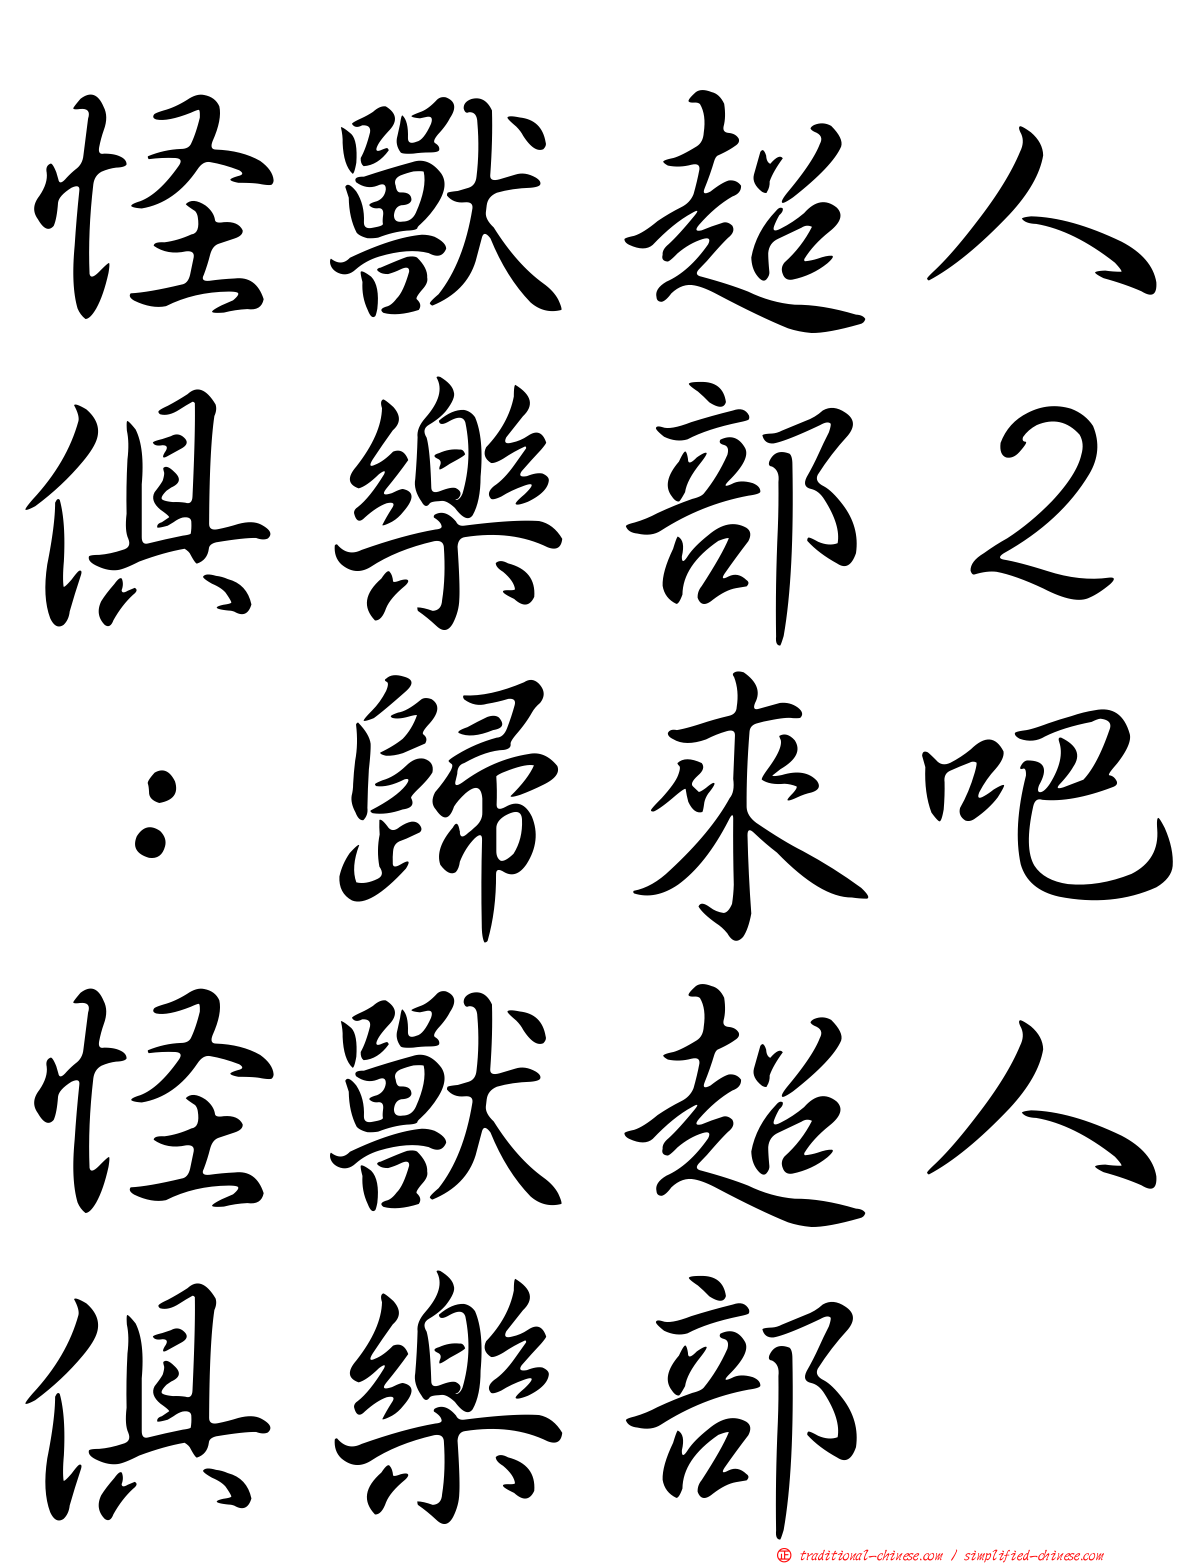 怪獸超人
俱樂部２
：歸來吧
怪獸超人
俱樂部
正 traditional-chinese.com / simplified-chinese.com